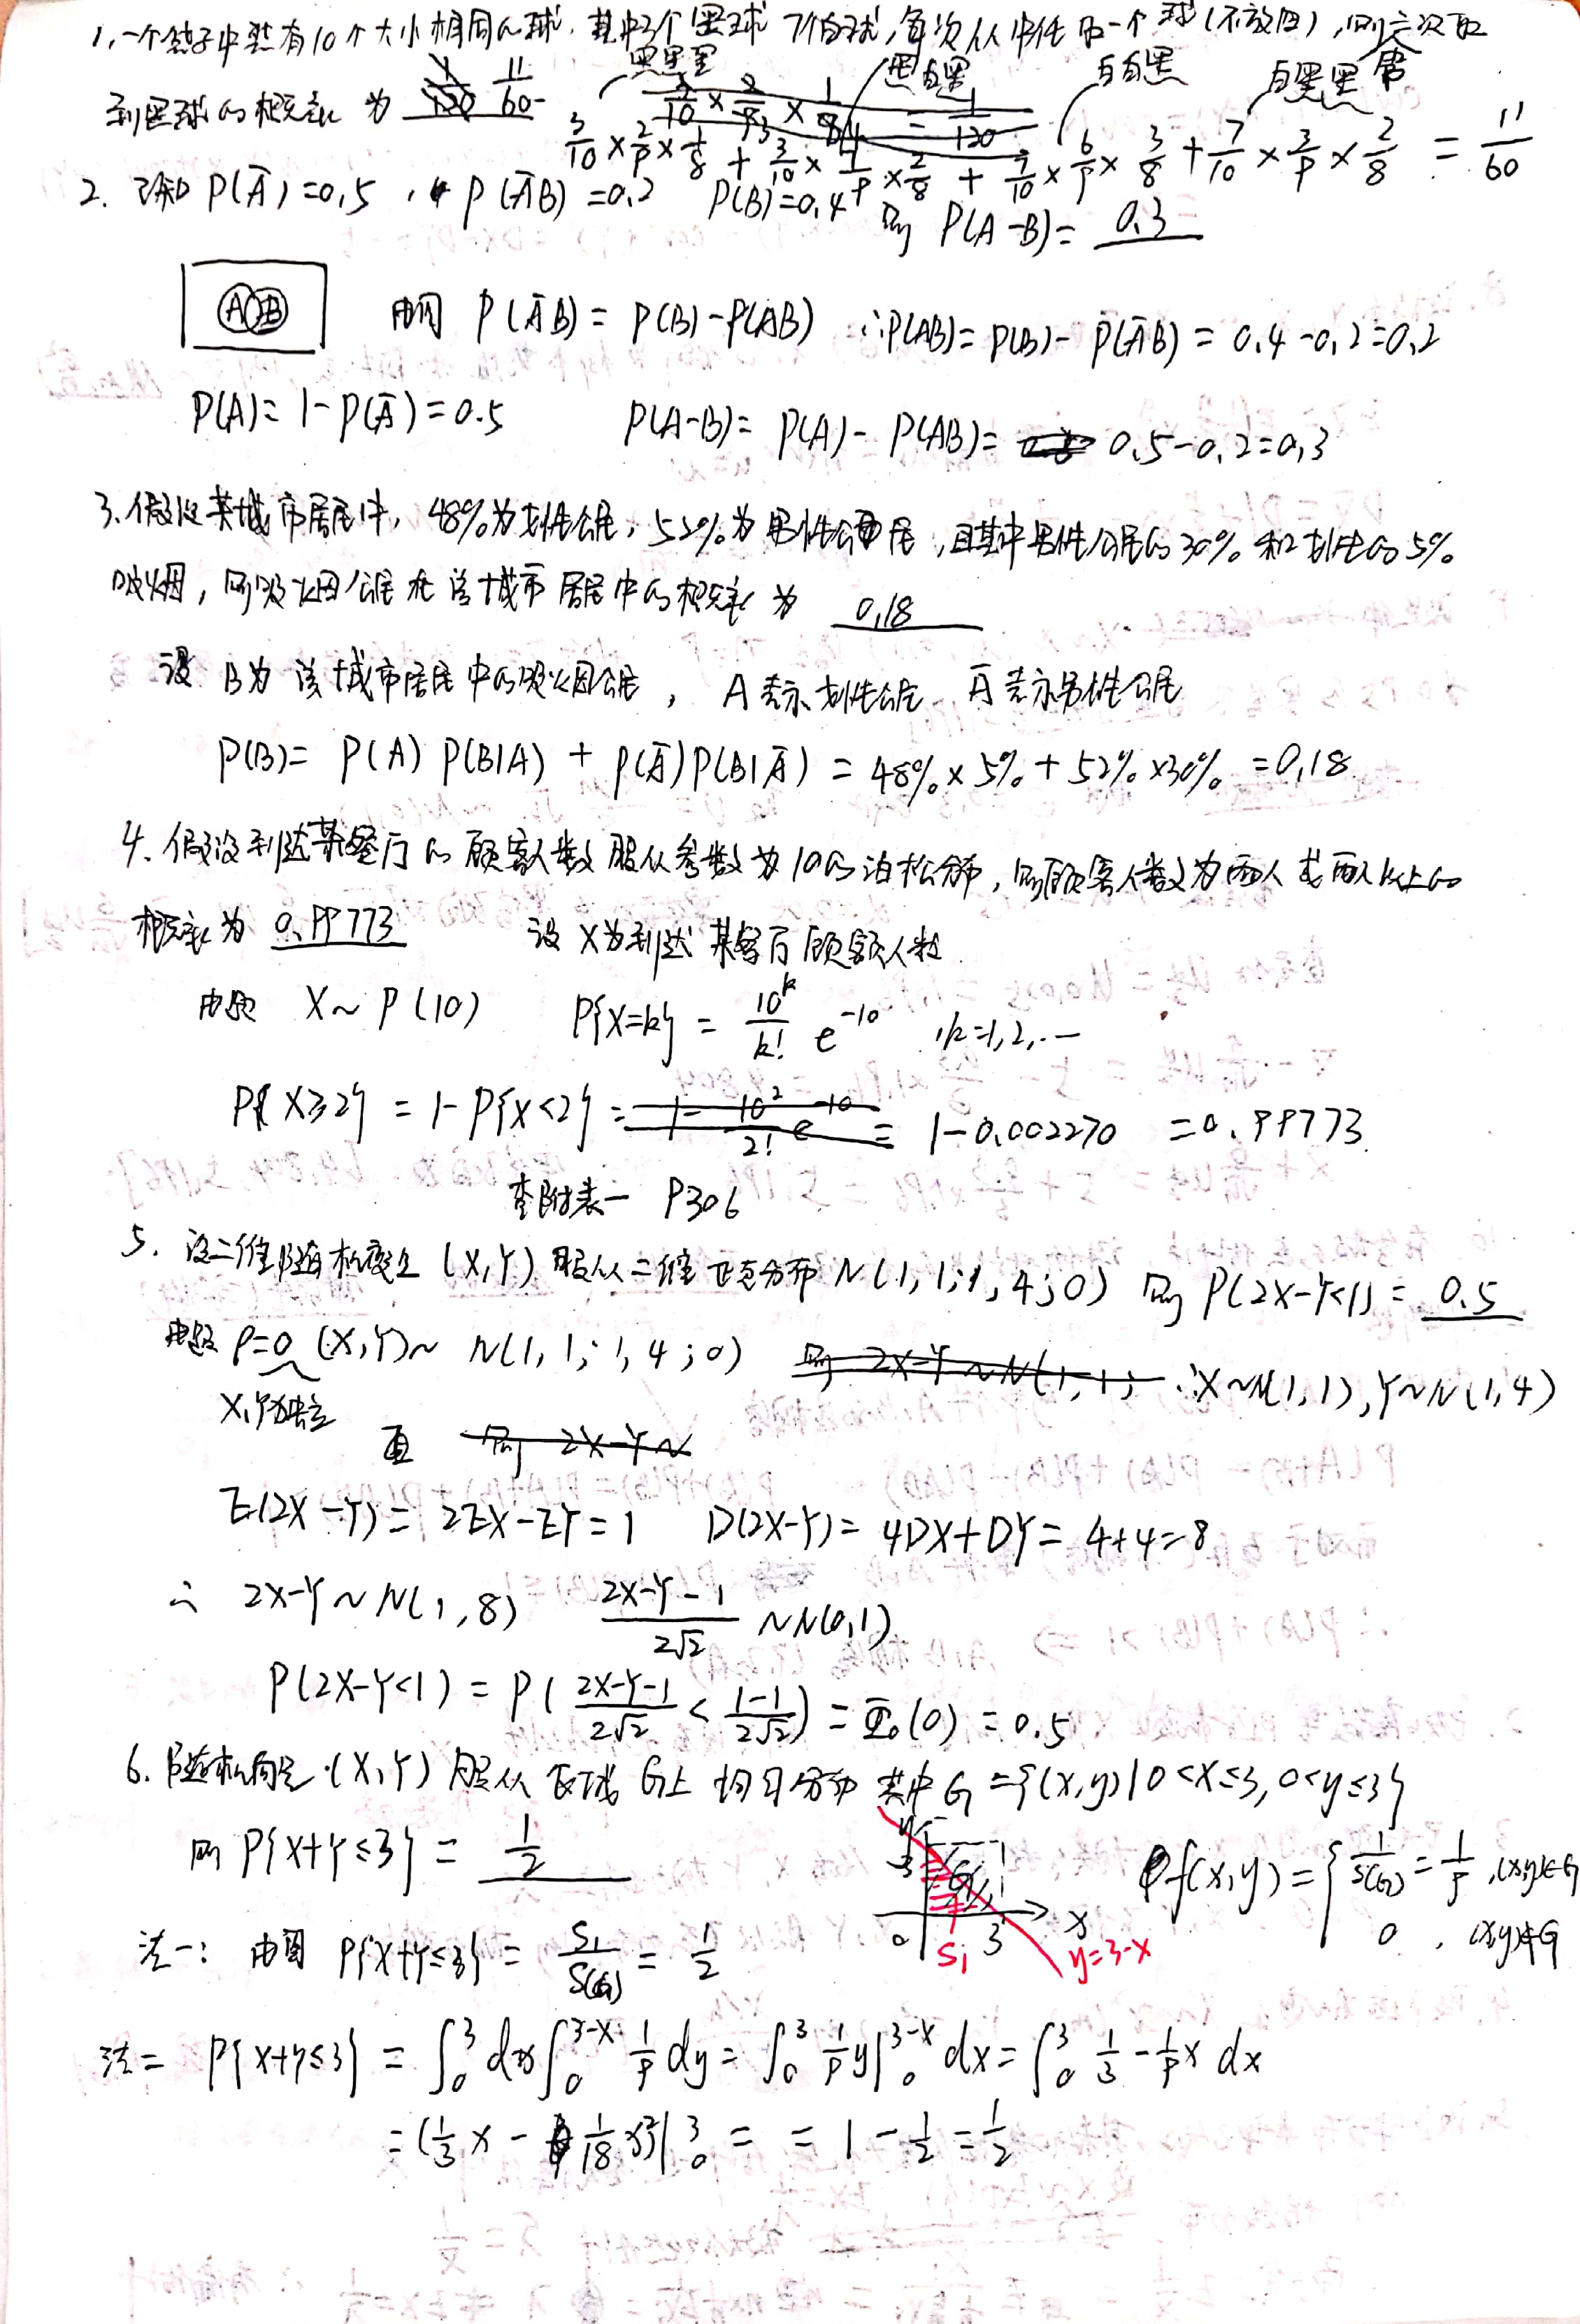 1.一个袋子中装有10个大小相同的球,其中3个黑球 7个白球,每次从中任取一个球(不放回),则三次取
到黑球的概率为 11/60
黑黑黑 黑白黑 白白黑 白黑黑
3/10×2/9×1/8+3/10×7/9×2/8+7/10×6/9×3/8+7/10×3/9×2/8=11/60
2. 已知P(Ā)=0.5, P(ĀB)=0.2 P(B)=0.4 则 P(A-B)=0.3
A B 由图 P(ĀB)=P(B)-P(AB) ∴P(AB)=P(B)-P(ĀB)=0.4-0.2=0.2
P(A)=1-P(Ā)=0.5 P(A-B)=P(A)-P(AB)=0.5-0.2=0.3
3.假设某城市居民中,48%为女性公民,52%为男性公民,且其中男性公民的30%和女性的5%
吸烟,则吸烟公民在该城市居民中的概率为 0.18
设 B为该城市居民中的吸烟公民, A表示女性公民 Ā表示男性公民
P(B)=P(A)P(B|A)+P(Ā)P(B|Ā)=48%×5%+52%×30%=0.18
4.假设到达某餐厅的顾客人数服从参数为10的泊松分布,则顾客人数为两人或两人以上的
概率为 0.99773 设X为到达某餐厅顾客人数
由题 X~P(10) P{X=k}=10^k/k! e^-10 ,k=1,2,…
P{X≥2}=1-P{X<2}=1-0.002270=0.99773
查附表一 P306
5. 设二维随机变量(X,Y)服从二维正态分布N(1,1;1,4;0) 则P(2X-Y<1)=0.5
由题 ρ=0 (X,Y)~N(1,1;1,4;0) ∴X~N(1,1),Y~N(1,4)
X,Y独立 且
E(2X-Y)=2EX-EY=1 D(2X-Y)=4DX+DY=4+4=8
∴ 2X-Y~N(1,8) (2X-Y-1)/2√2 ~N(0,1)
P(2X-Y<1)=P((2X-Y-1)/2√2<(1-1)/2√2)=Φ₀(0)=0.5
6.随机向量(X,Y)服从区域G上均匀分布 其中G={(x,y)|0<x≤3,0<y≤3}
则P{X+Y≤3}=1/2
y 3 G 0 S₁ 3 x y=3-x
f(x,y)={1/S(G)=1/9,(x,y)∈G
0,(x,y)∉G
法一: 由图 P{X+Y≤3}=S₁/S(G)=1/2
法二 P{X+Y≤3}=∫₀³dx∫₀^(3-x) 1/9 dy=∫₀³ 1/9 y|₀^(3-x) dx=∫₀³ 1/3-1/9x dx
=(1/3x-1/18x²)|₀³= =1-1/2=1/2